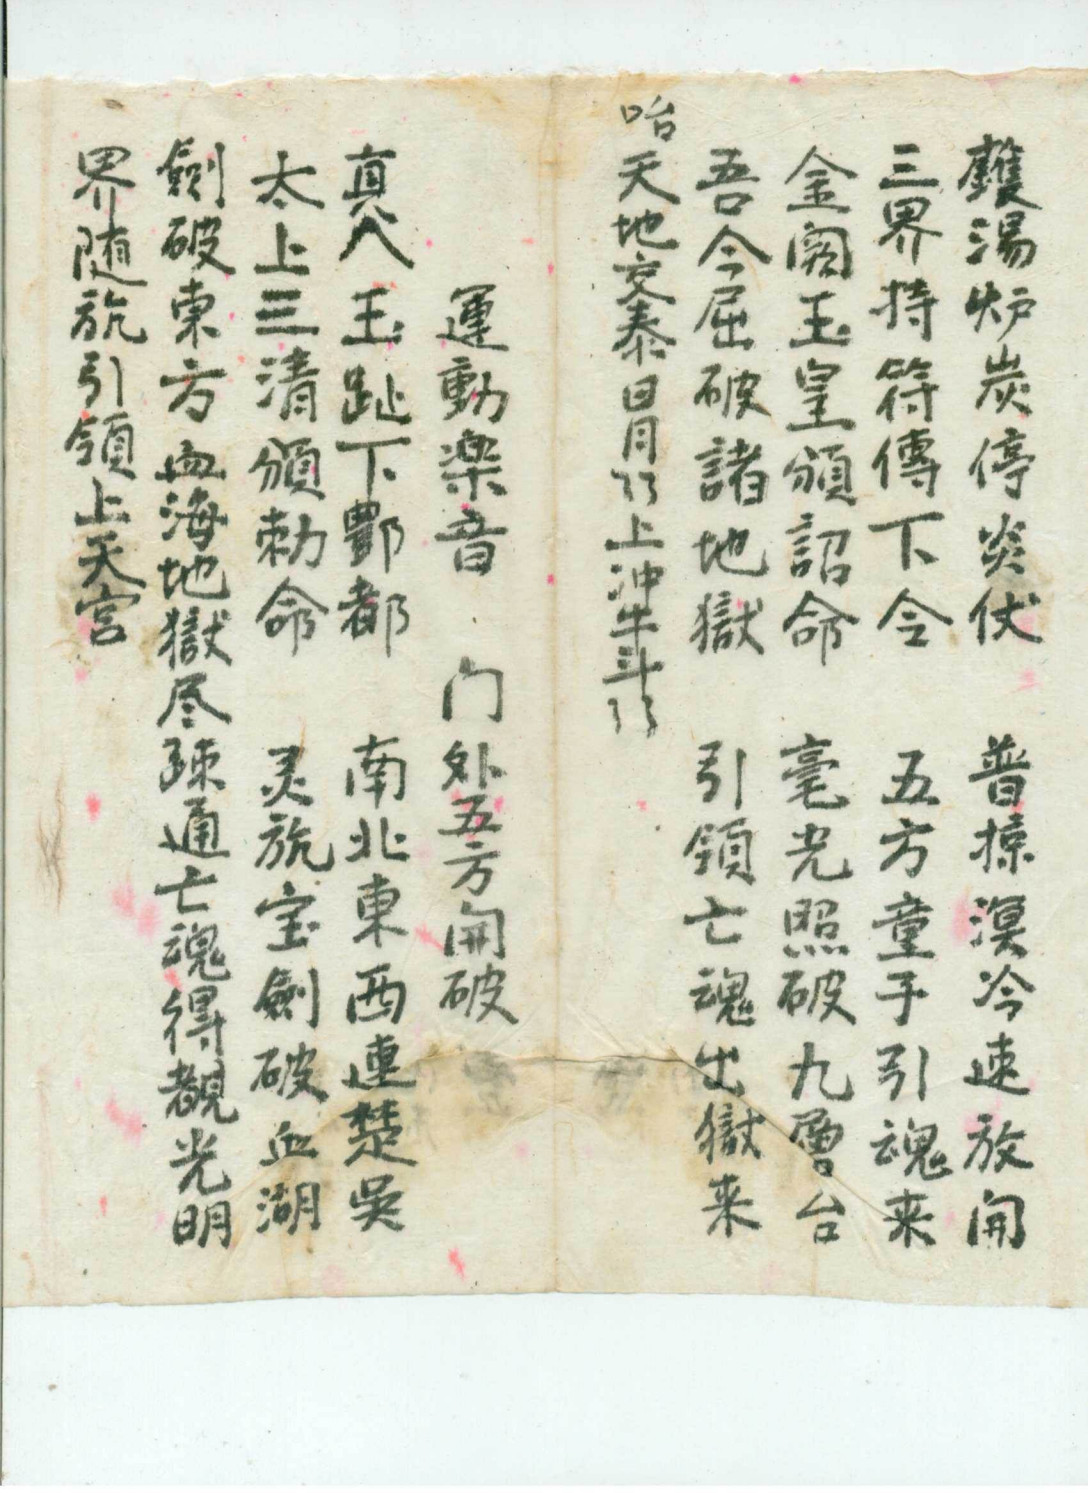 鑊湯炉炭停炎伏 普掠溟冷速放開
三界持符傳下令 五方童子引魂来
金闕玉皇頒詔命 毫光照破九層台
吾今屈破諸地獄 引領亡魂出獄来
咍天地交泰日月 上冲牛斗
運動楽音 门外五方開破
真人玉趾下酆都 南北東西連楚吳
太上三清頒勅命 灵旂宝劍破血湖
劍破東方血海地獄尽疎通亡魂得覩光明
界随旂引領上天宮